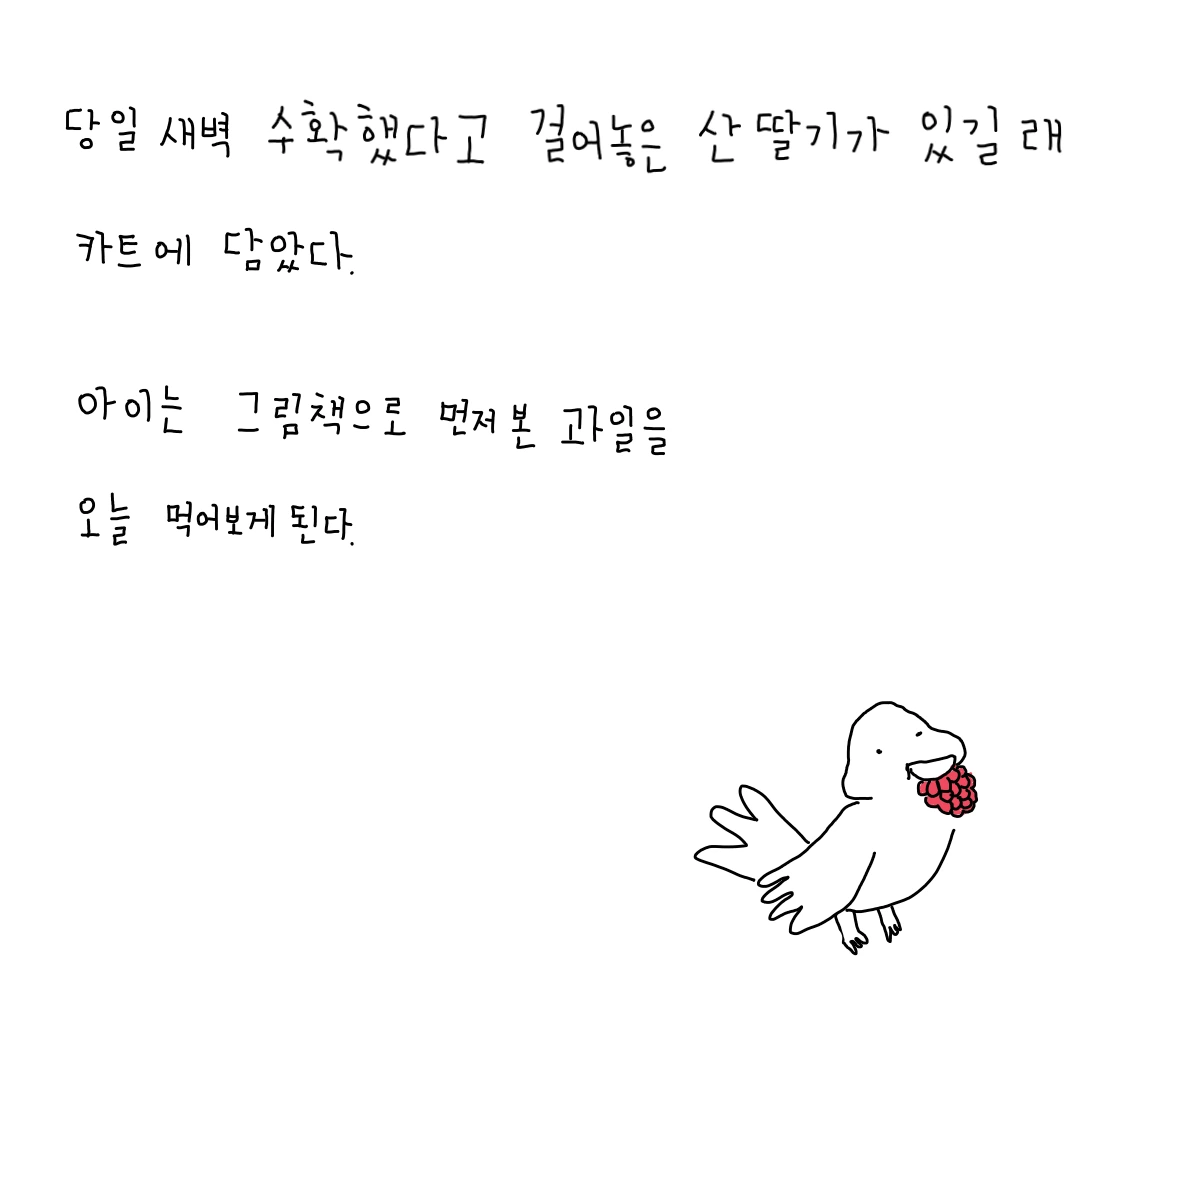 당일 새벽 수확했다고 걸어놓은 산딸기가 있길래
카트에 담았다.
아이는 그림책으로 먼저 본 과일을
오늘 먹어보게 된다.